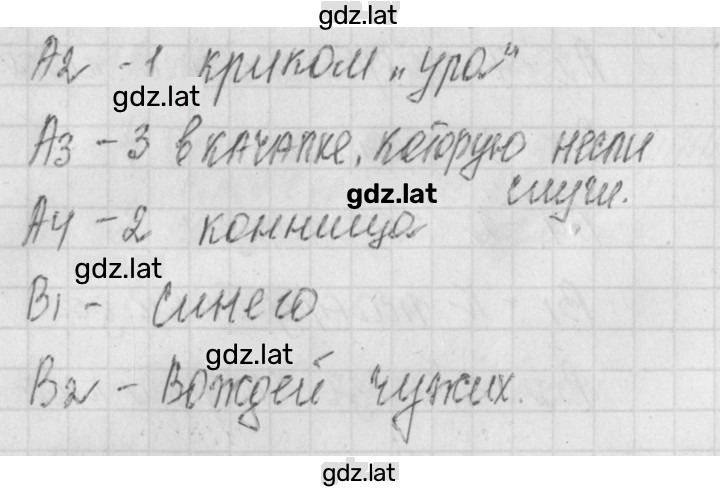 gdz.lat
А2 - 1 криком „ура"
gdz.lat
А3 - 3 в качалке, которую несли
gdz.lat
слуги.
А4 - 2 конница
gdz.lat
В1 - синего
gdz.lat
В2 - Вождей чужих.
gdz.lat